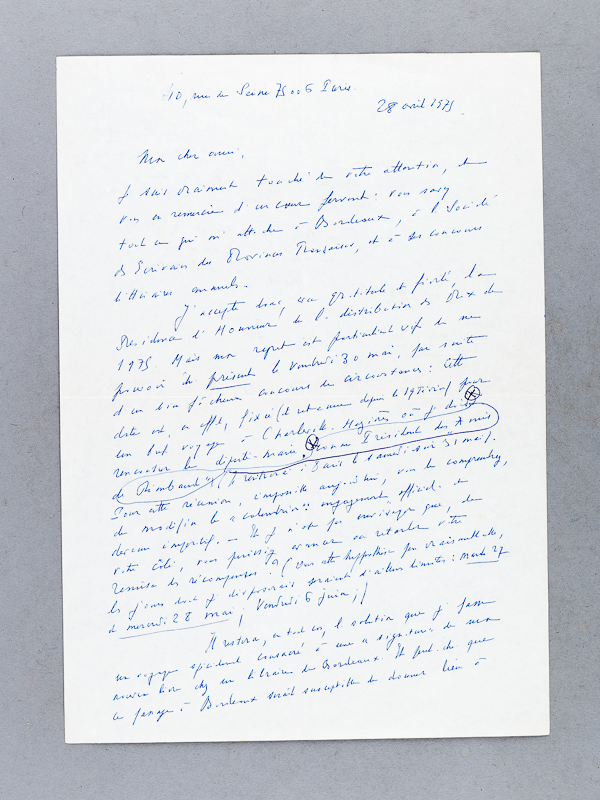 10, rue de Seine 75006 Paris.
28 avril 1975
Mon cher ami,
Je suis vraiment touché de votre attention, et
vous en remercie d'un cœur fervent : vous savez
tout ce qui m'attache à Bordeaux, à la Société
des Écrivains des Provinces Françaises, et à ses concours
littéraires annuels.
J'accepte donc, avec gratitude et fierté, la
Présidence d'Honneur de la distribution des Prix de
1975. Mais mon regret est particulièrement vif de ne
pouvoir être présent le vendredi 30 mai, par suite
d'un bien fâcheux concours de circonstances : Cette
date est, en effet, fixée (et retenue depuis le 19 février) pour
un bref voyage à Charleville-Mézières où je dois
rencontrer le député-maire, comme Président des Amis
de Rimbaud (je rentrerai à Paris le samedi soir 31 mai).
Pour cette réunion, impossible aujourd'hui, vous le comprendrez,
de modifier le calendrier : engagement officiel et
devenu impératif. — Il n'est pas envisagé que, de
votre côté, vous puissiez avancer ou retarder votre
remise des récompenses ? (Dans cette hypothèse peu vraisemblable,
les jours dont je disposerais seraient d'ailleurs limités : mardi 27
et mercredi 28 mai ; vendredi 6 juin ;)
Il restera, en tout cas, la solution que je fasse
un voyage spécialement consacré à une signature de mon
nouveau livre chez un libraire de Bordeaux. Il peut-être que
ce passage à Bordeaux serait susceptible de donner lieu à